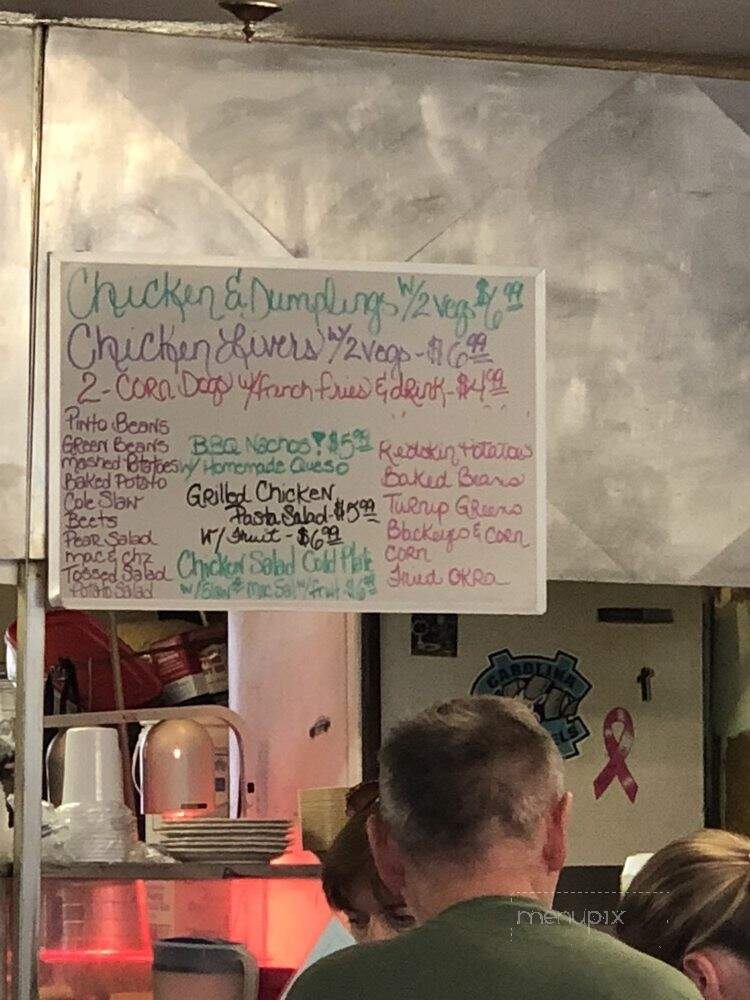 Chicken & Dumplings w/2 vegs $6.99
Chicken Livers w/2 vegs - $6.99
2 - Corn Dogs w/french fries & drink - $4.99
Pinto Beans
Green Beans
Mashed Potatoes
Baked Potato
Cole Slaw
Beets
Pear Salad
mac & chz
Tossed Salad
Potato Salad
BBQ Nachos! $5.99
w/ Homemade Queso
Grilled Chicken
Pasta Salad - $5.99
w/ fruit - $6.99
Chicken Salad Cold Plate
w/ Slaw Mac Sal w/ fruit - $6.99
Redskin Potatoes
Baked Beans
Turnip Greens
Blackeyes & Corn
Corn
Fried OKRa
CAROLINA
menupix